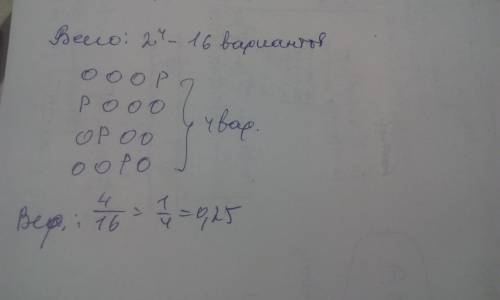 Всего: 2⁴ - 16 вариантов
О О О Р
Р О О О
О Р О О
О О Р О
} 4 вар.
Вер.: 4/16 = 1/4 = 0,25